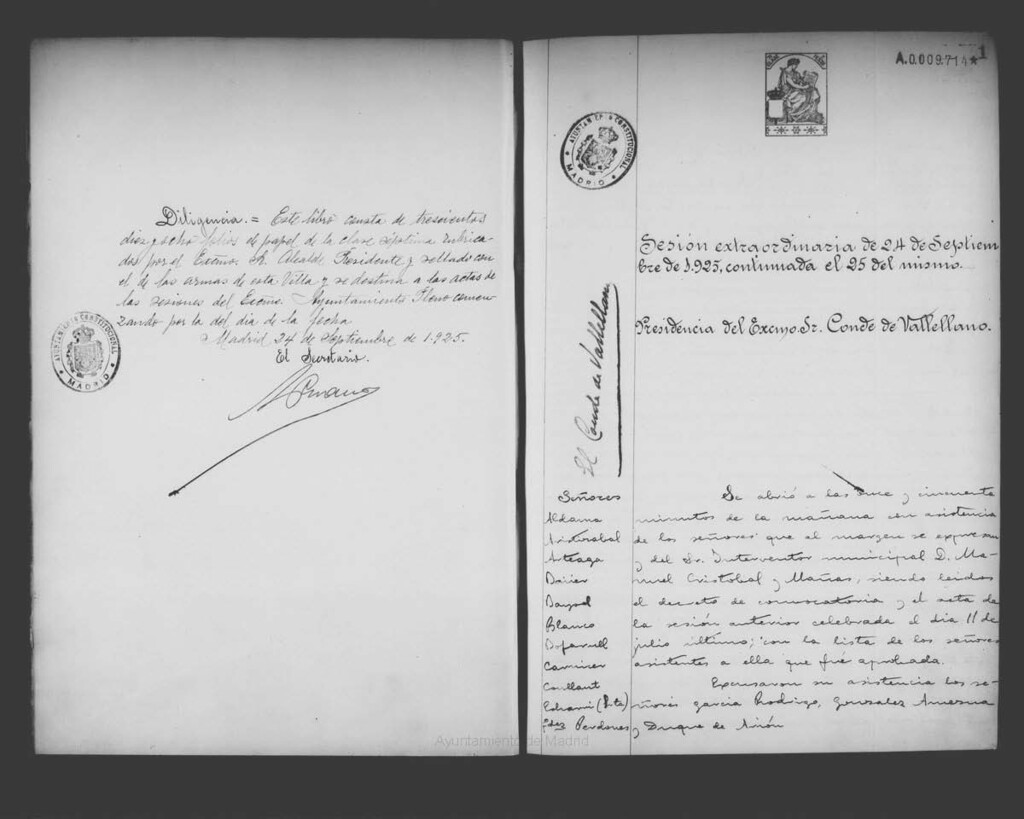 Diligencia.= Este libro consta de trescientos
diez y ocho folios de papel de la clase séptima rubrica-
dos por el Excmo. Sr. Alcalde Presidente y sellado con
el de las armas de esta Villa y se destina a las actas de
las sesiones del Excmo. Ayuntamiento Pleno comen-
zando por la del dia de la fecha
Madrid 24 de Septiembre de 1.925.
El Secretario.
AYUNTAMIENTO CONSTITUCIONAL
MADRID
A.0.009.714★
1
AYUNTAMIENTO CONSTITUCIONAL
MADRID
Sesión extraordinaria de 24 de Septiem
bre de 1.925, continuada el 25 del mismo.
Presidencia del Excmo. Sr. Conde de Vallellano.
El Conde de Vallellano
Señores
Aldama
Aristizabal
Arteaga
Baüer
Blanco
Bofarull
Caminer
Coullaut
Fdez Perdones
Se abrió a las once y cincuenta
minutos de la mañana con asistencia
de los señores que al margen se expresan
y del Sr. Interventor municipal D. Ma-
nuel Cristobal y Mañas, siendo leidos
el decreto de convocatoria y el acta de
la sesión anterior celebrada el dia 11 de
julio último, con la lista de los señores
asistentes a ella que fué aprobada.
Excusaron su asistencia los se-
ñores garcia Rodrigo, Gonzalez Amezua
y Duque de
Ayuntamiento de Madrid